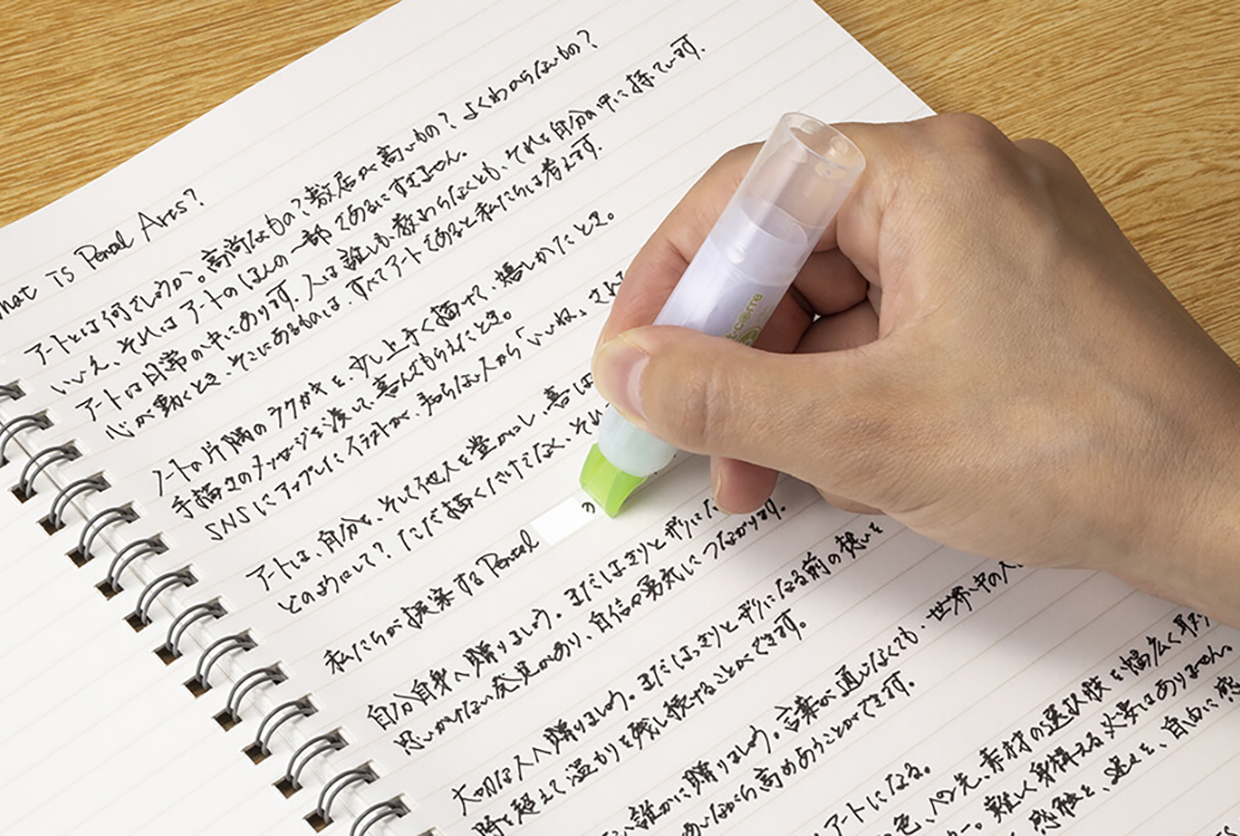 What Is Pentel Arts?
アートとは何でしょうか。高尚なもの?敷居が高いもの?よくわからないもの?
いいえ、それはアートのほんの一部であるにすぎません。
アートは日常の中にあります。人は誰しも教わらなくとも、それを自分の中に持っています。
心が動くとき、そこにあるものはすべてアートであると私たちは考えます。
ノートの片隅のラクガキを、少し上手く描けて、嬉しかったとき。
手描きのメッセージを渡して、喜んでもらえたとき。
SNSにアップしたイラストが、知らない人から「いいね」され
アートは、自分を、そして他人を豊かにし、喜ば
どのようにして?ただ描くだけでなく、それ
私たちが提案するPentel
自分自身へ贈りましょう。まだはっきりと形にな
思いがけない発見があり、自信や勇気につながります。
大切な人へ贈りましょう。まだはっきりと形になる前の想いを
時を超えて温かりを残し続けることができます。
誰かに贈りましょう。言葉が通じなくても、世界中の人
いながら高めあうことができます。
アートになる。
色、ペン先、素材の選択肢を幅広く取り
難しく身構える必要はありません。
感触を、速さを、自由に感